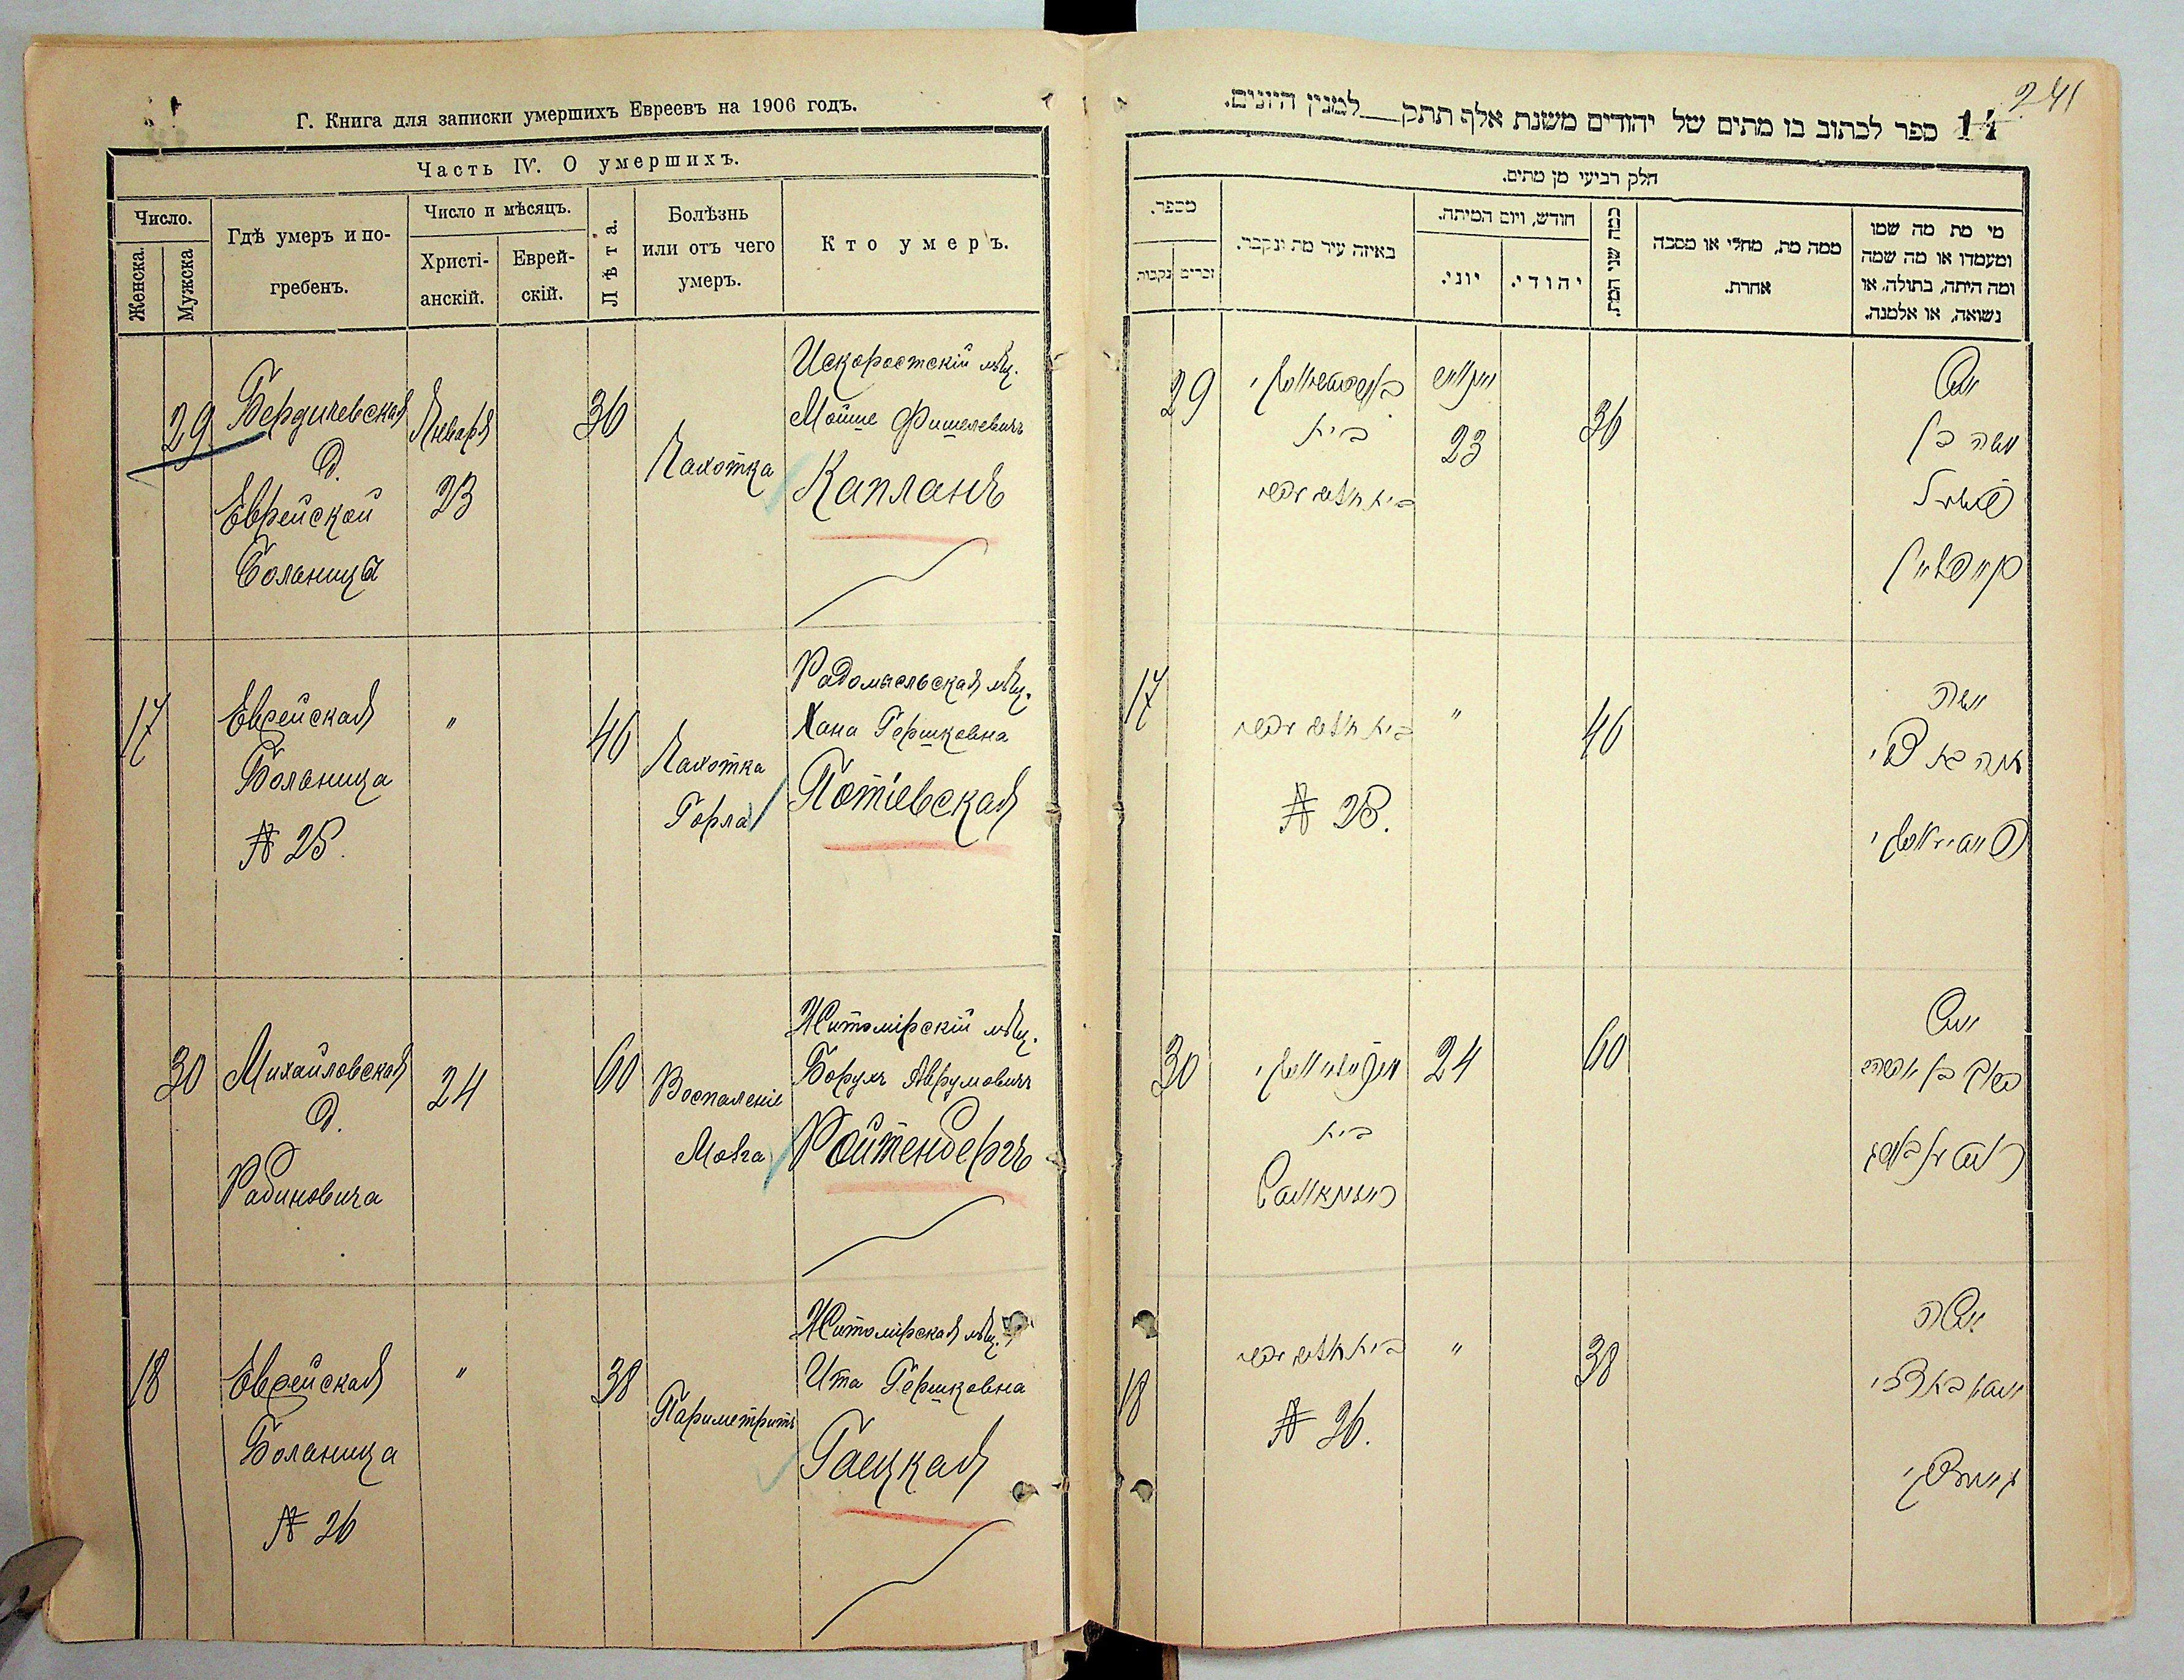 Г. Книга для записки умершихъ Евреевъ на 1906 годъ.
Часть IV. О умершихъ.
Число.
Женска.
Мужска
Гдѣ умеръ и по-
гребенъ.
Число и мѣсяцъ.
Христі-
анскій.
Еврей-
скій.
Лѣта.
Болѣзнь
или отъ чего
умеръ.
Кто умеръ.
29
Бердичевская
д.
Еврейской
Боланица
Января
23
36
Чахотка
Искоростскій мѣщ.
Мойше Фишелевичъ
Капланъ
17
Еврейская
Боланица
№ 25.
"
46
Чахотка
Горла
Радомысльская мѣщ.
Хана Гершковна
Потіевская
30
Михайловская
д.
Рабиновича
24
60
Воспаленіе
Мозга
Житомірскій мѣщ.
Борухъ Аврумовичъ
Ройтенбергъ
18
Еврейская
Боланица
№ 26
"
38
Параметритъ
Житомірская мѣщ.
Ита Гершковна
Гаецкая
241
14 ספר לכתוב בו מתים של יהודים משנת אלף תתק___למנין היונים.
חלק רביעי מן מתים.
מספר.
נקבות
זכרים
באיזה עיר מת ונקבר.
חודש, ויום המיתה.
יוני.
יהודי.
כמה שני המת.
ממה מת, מחלי או מסבה
אחרת.
מי מת מה שמו
ומעמדו או מה שמה
ומה היתה, בתולה, או
נשואה, או אלמנה.
29
בית
23
36
משה בן
פישל
קאפלאן
17
"
№ 25.
46
חנה בת צבי
30
בית
24
60
ברוך בן אברהם
18
"
№ 26.
38